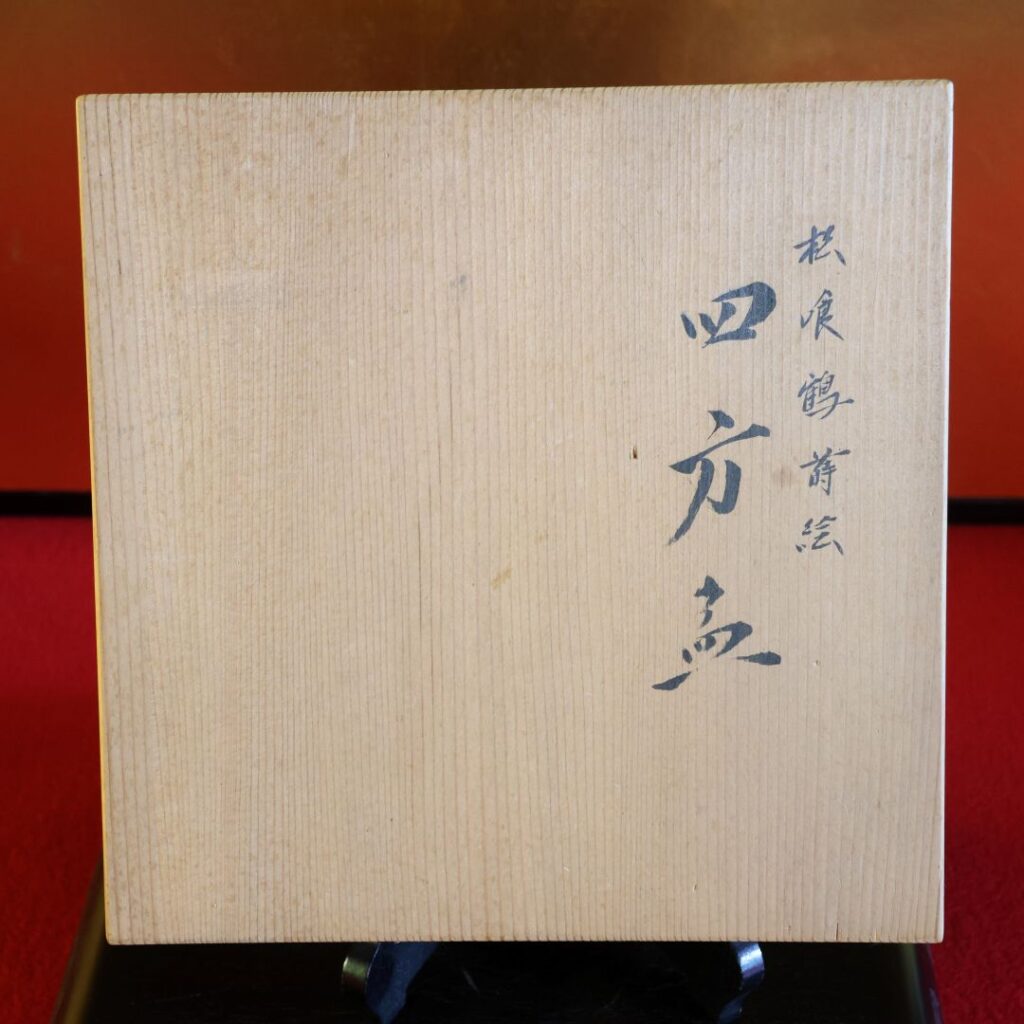 松喰鶴蒔絵
四方盆